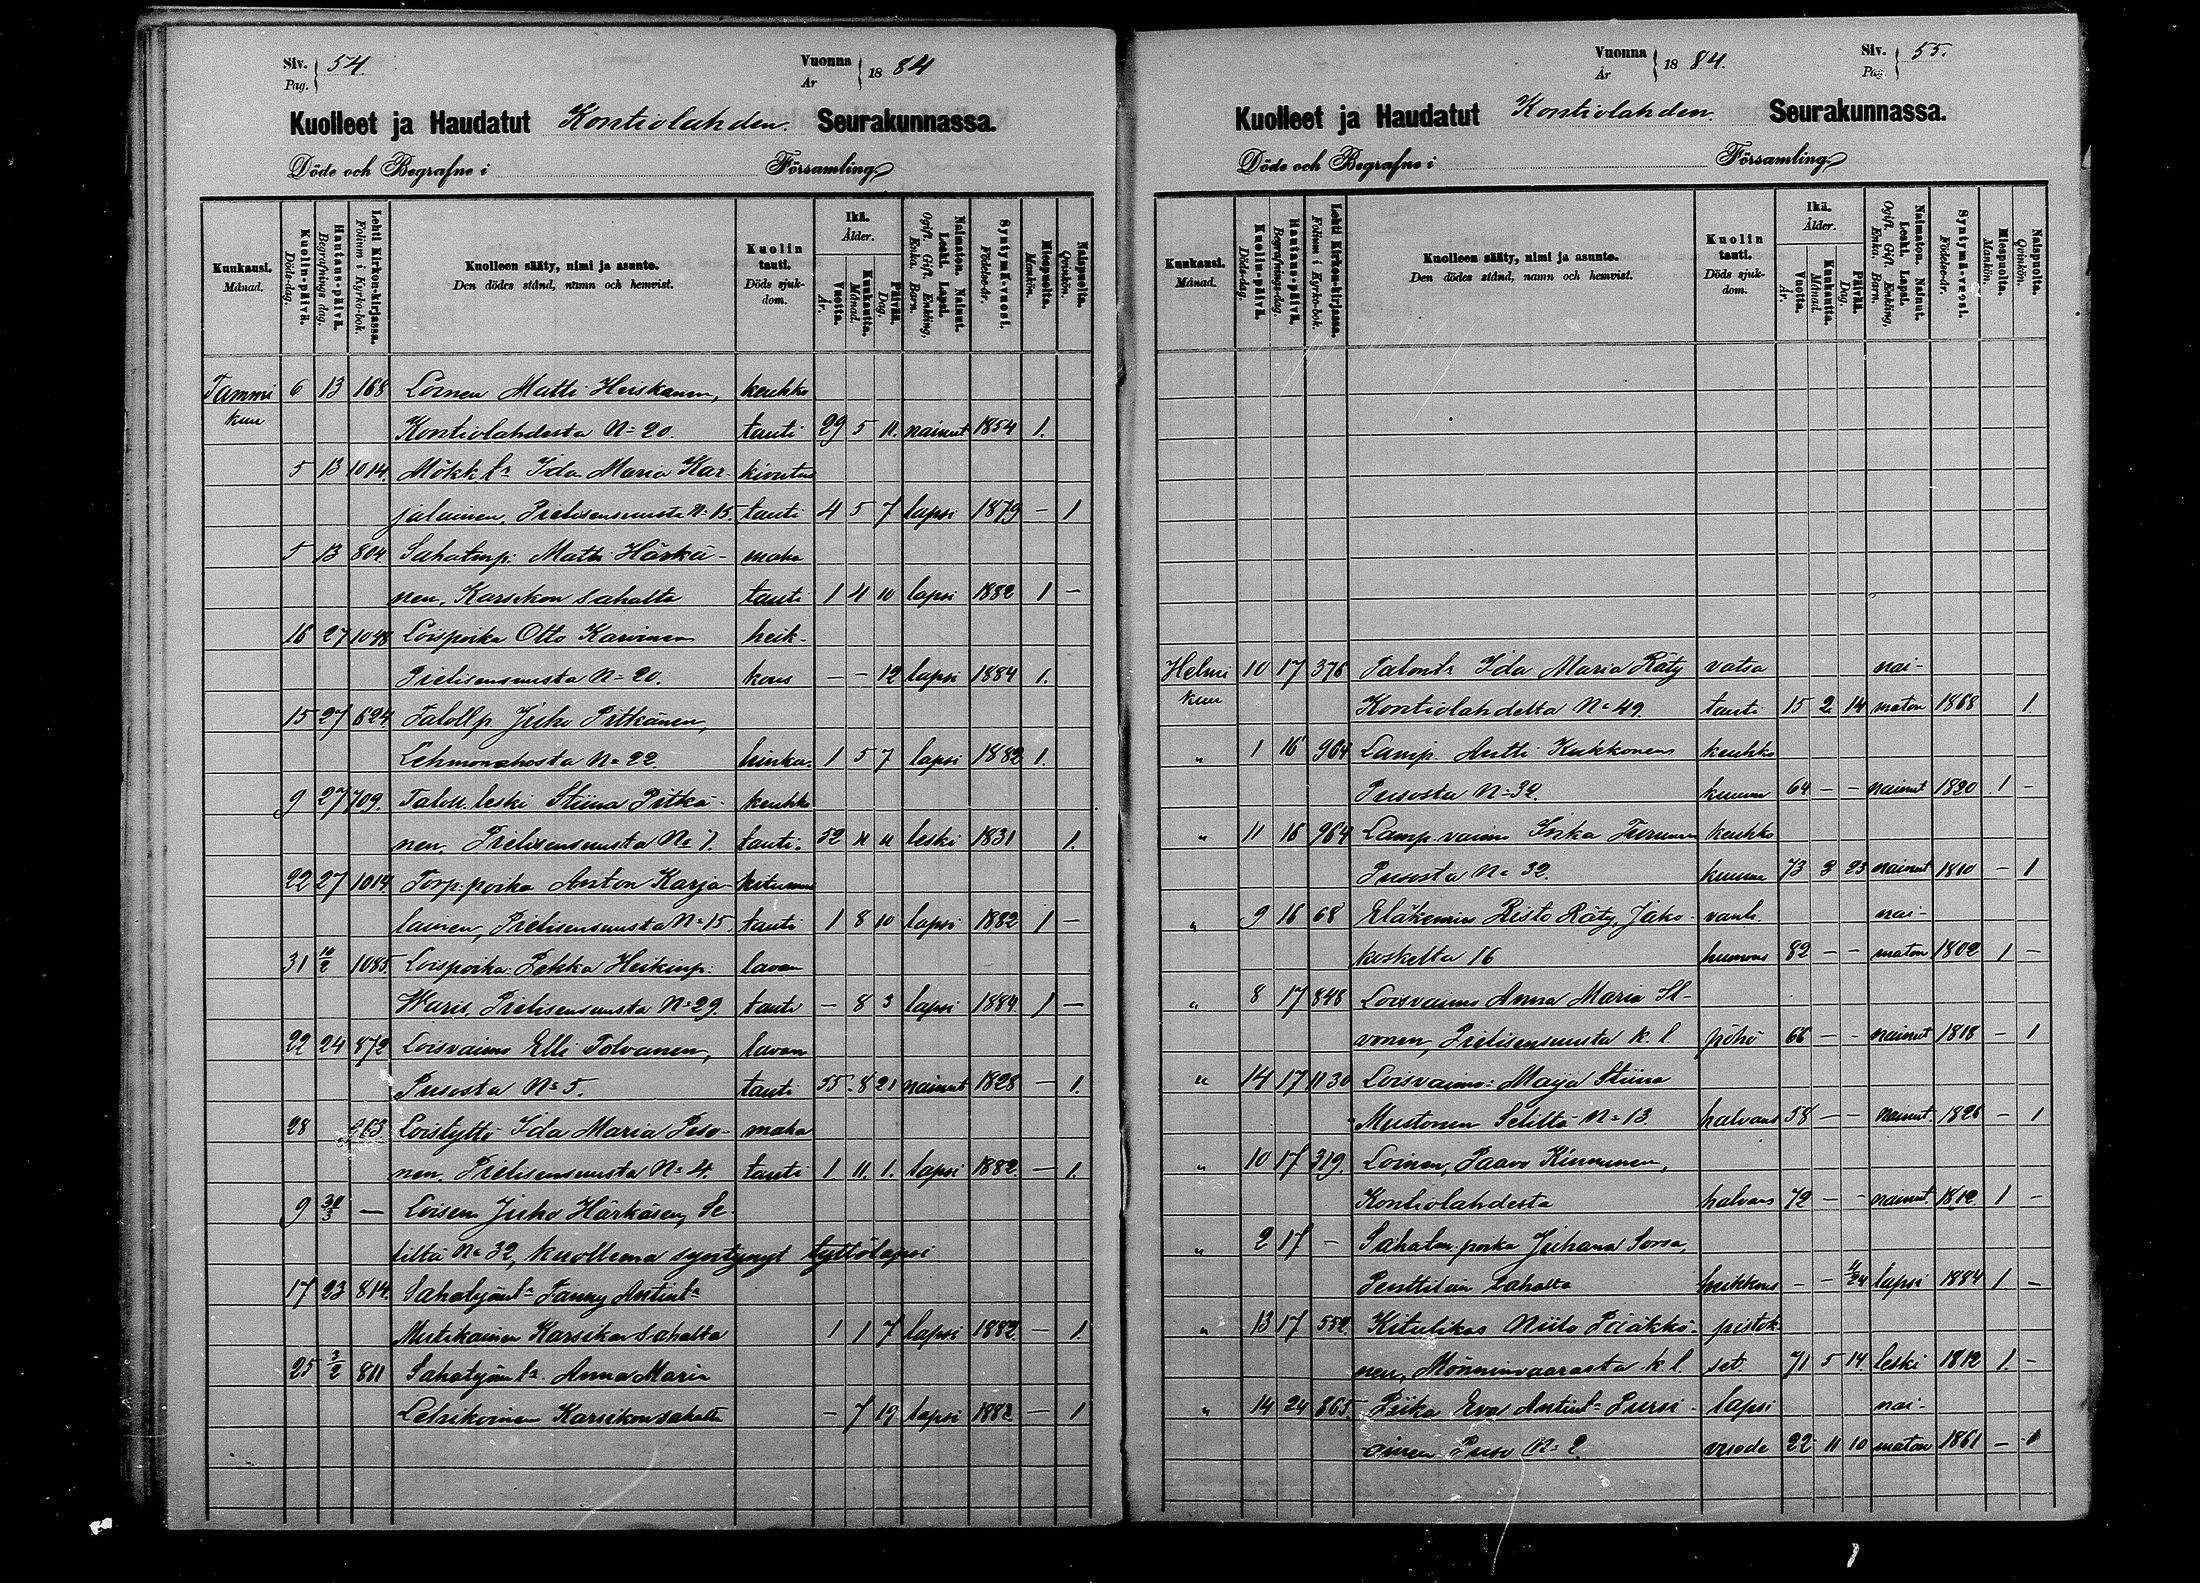 Siv. 54.
Pag.
Vuonna 1884
År
Kuolleet ja Haudatut Kontiolahden. Seurakunnassa.
Döde och Begrafne i Församling.
Kuukausi. Månad.
Kuolin-päivä. Döds-dag.
Hautaus-päivä. Begrafnings dag.
Lehti Kirkon-kirjassa. Folium i Kyrko-bok.
Kuolleen sääty, nimi ja asunto.
Den dödes stånd, namn och hemvist.
Kuolin tauti. Döds sjukdom.
Ikä. Ålder.
Vuotta. År.
Kuukautta. Månad.
Päivää. Dag.
Naimaton. Nainut. Leski. Lapsi.
Ogift. Gift. Enkling, Enka. Barn.
Syntymä-vuosi. Födelse-år.
Miespuolta. Mankön.
Naispuolta. Qvinkön.
Tammi 6 13 168 Loinen Matti Heiskanen, keuhko
kuu Kontiolahdesta No 20. tauti 29 5 11. nainut 1854 1.
5 13 1014. Mökk. tr Ida Maria Kar-
jalainen, Pielisensuusta No 15. tauti 4 5 7 lapsi 1879 — 1
5 13 804. Matti Härkä- maha
nen, Karsikon sahalta tauti 1 4 10 lapsi 1882 1 —
16 27 1048 Loispoika Otto Karvinen heik-
Pielisensuusta No 20. kous — — 12 lapsi 1884 1.
15 27 624. Juho Pitkänen,
Lehmonahosta No 22. hinku. 1 5 7 lapsi 1882 1.
9 27 709. Talon leski Stiina Pitkä- keuhko
nen, Pielisensuusta No 7. tauti. 52 leski 1831 1.
22 27 1014 Torp: poika Anton Karja-
lainen, Pielisensuusta No 15. tauti 1 8 10 lapsi 1882 1 —
31 10/2 1085. Loispoika: Pekka Heikinp: lavan
Waris, Pielisensuusta No 29. tauti — 8 3 lapsi 1884. 1 —
22 24 872 Loisvaimo Elli Tolvanen, lavan
Pusosta No 5. tauti 55. 8 21 nainut 1828 — 1.
28 Loistyttö Ida Maria Peso- maha
nen, Pielisensuusta No 4. tauti 1. 11. 1. lapsi 1882. — 1.
9 — Loisen Juho Härkäsen, Se-
liltä No 32, kuolleena syntynyt tyttölapsi
17 23 814. Fanny
Mutikainen Karsikon sahalta 1 1 7 lapsi 1882. — 1.
25 3/2 811 Anna Maria
Karsikonsahalta — 7 19 lapsi 1883 — 1
Siv. 55.
Pag.
Vuonna 1884.
År
Kuolleet ja Haudatut Kontiolahden. Seurakunnassa.
Döde och Begrafne i Församling.
Kuukausi. Månad.
Kuolin-päivä. Döds-dag.
Hautaus-päivä. Begrafnings-dag.
Lehti Kirkon-kirjassa. Folium i Kyrko-bok.
Kuolleen sääty, nimi ja asunto.
Den dödes stånd, namn och hemvist.
Kuolin tauti. Döds sjukdom.
Ikä. Ålder.
Vuotta. År.
Kuukautta. Månad.
Päivää. Dag.
Naimaton. Nainut. Leski. Lapsi.
Ogift. Gift. Enkling, Enka. Barn.
Syntymä-vuosi. Födelse-år.
Miespuolta. Mankön.
Naispuolta. Qvinkön.
Helmi 10 17 376 Talontr Ida Maria Räty vatsa nai-
kuu Kontiolahdelta No 49. tauti 15 2. 14 maton 1868 1.
„ 1 16 964 Lamp. Antti Kukkonen keuhko
Pusosta No 32. kuume 64 — — nainut 1820 1 —
„ 11 16 964 Lamp. vaimo Turunen keuhko
Pusosta No 32. kuume 73 3 23 nainut 1810 — 1
„ 9 16 68 Risto Räty, Jako- vanh. nai-
koskelta 16 82 — — maton 1802 1 —
„ 8 17 848 Loisvaimo Anna Maria
vonen, Pielisensuusta k. l. pöhö 66 — — nainut 1818 — 1
„ 14 17 1130 Loisvaimo: Maija Stiina
Mustonen Seliltä No 13. halvaus 58 — — nainut. 1826 — 1
„ 10 17 319. Loinen, Paavo Kinnunen,
Kontiolahdesta halvaus 72 — — nainut. 1812. 1 —
„ 2 17 — poika Juhana Sorsa,
Penttilän sahalta heikkous — — lapsi 1884 1. —
„ 13 17 552. Niilo Pääkkö- pistok
nen, Mönninvaarasta k. l. set. 71 5 14. leski 1812 1. —
„ 14 24 865. Piika Eva Pursi- lapsi nai-
ainen Puso No 2. vuode 22 11 10 maton 1861 — 1